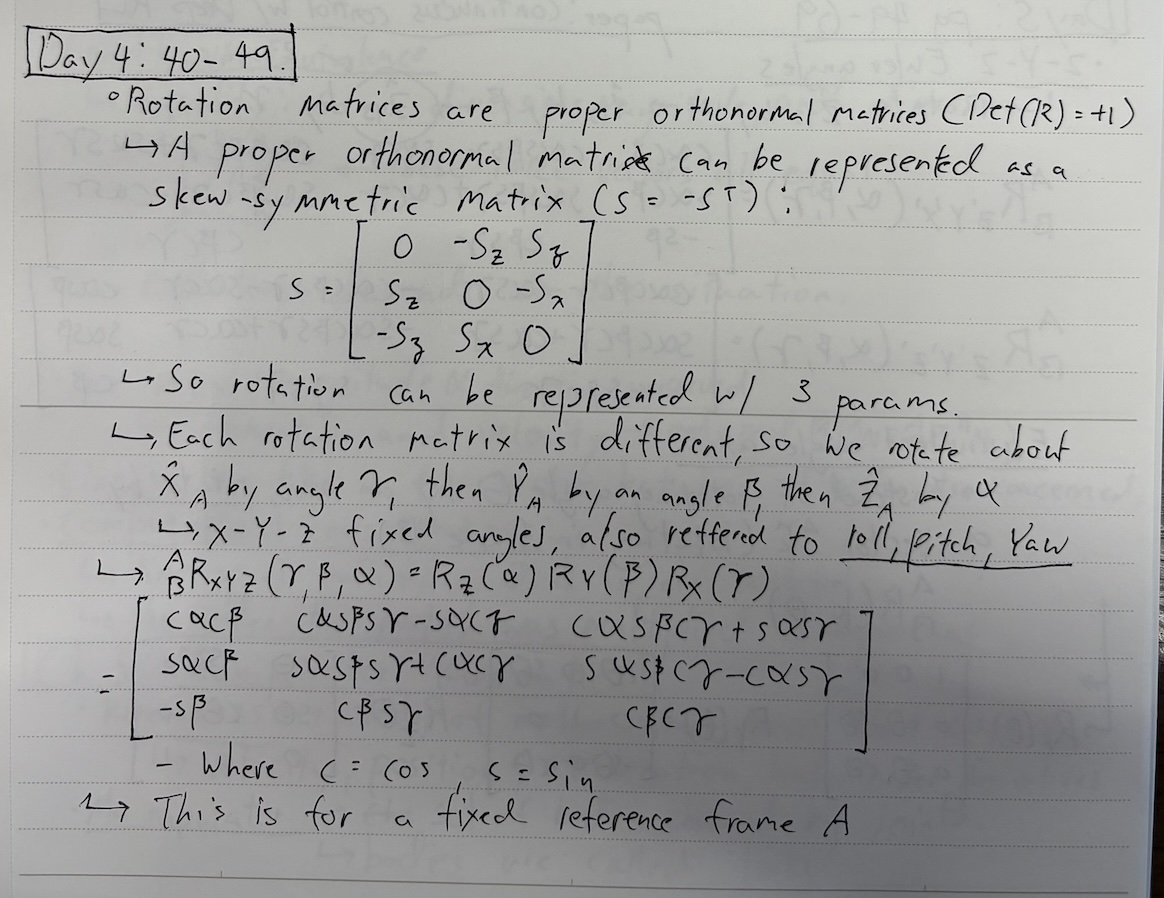 Day 4: 40-49.
◦ Rotation matrices are proper orthonormal matrices (Det(R) = +1)
↳ A proper orthonormal matrix can be represented as a
skew-symmetric matrix (S = -Sᵀ):
0 -Sz Sy
S = Sz 0 -Sx
-Sy Sx 0
↳ So rotation can be represented w/ 3 params.
↳ Each rotation matrix is different, so we rotate about
X̂_A by angle γ, then Ŷ_A by an angle β, then Ẑ_A by α
↳ X-Y-Z fixed angles, also reffered to roll, pitch, Yaw
↳ ᴬ_B R_XYZ (γ, β, α) = R_Z(α) R_Y(β) R_X(γ)
cαcβ cαsβsγ-sαcγ cαsβcγ+sαsγ
= sαcβ sαsβsγ+cαcγ sαsβcγ-cαsγ
-sβ cβsγ cβcγ
- Where c = cos, s = sin
↳ This is for a fixed reference frame A